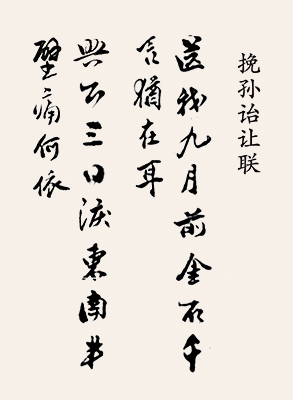 挽孙诒让联
送我九月前金石千
言猶在耳
哭公三日淚東南半
壁痛何依